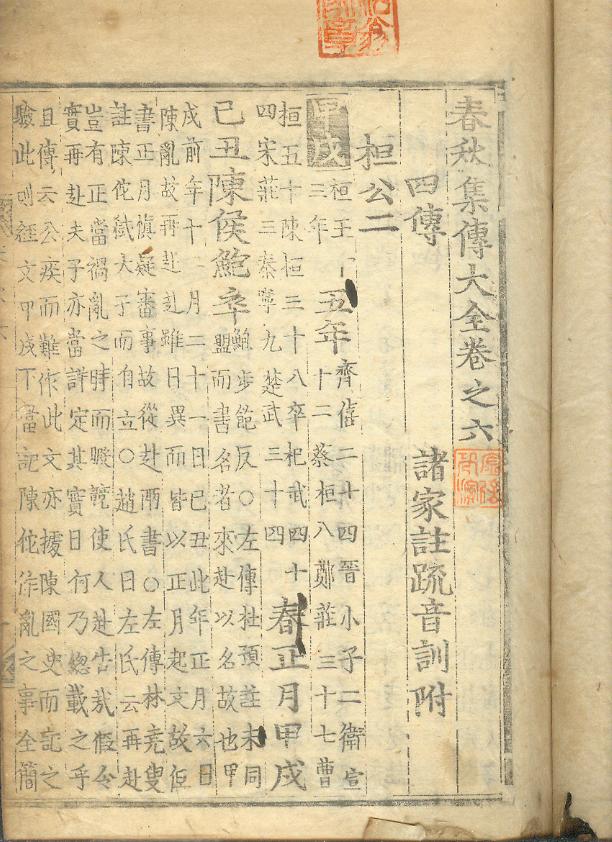 春秋集傳大全卷之六
四傳　諸家註疏音訓附
桓公二
甲戌
桓王十
三年
五年
齊僖二十四晉小子二衛宣
十二蔡桓八鄭莊三十七曹
桓五十陳桓三十八卒杞武四十
四宋莊三秦寧九楚武三十四
春正月甲戌
己丑陳侯鮑卒
鮑步飽反○左傳杜預註未同
盟而書名者來赴以名故也甲
戌前年十二月二十一日己丑此年正月六日
陳亂故再赴赴雖日異而皆以正月起文故但
書正月慎疑審事故從赴兩書○左傳林堯叟
註陳佗弑大子而自立○趙氏曰左氏云再赴
豈有正當禍亂之時而暇競使人赴告哉假令
實再赴夫子亦當詳定其實日何乃總載之乎
且傳云公疾而難作此文亦據陳國史而記之
驗此則經文甲戌下當記陳佗作亂之事全簡